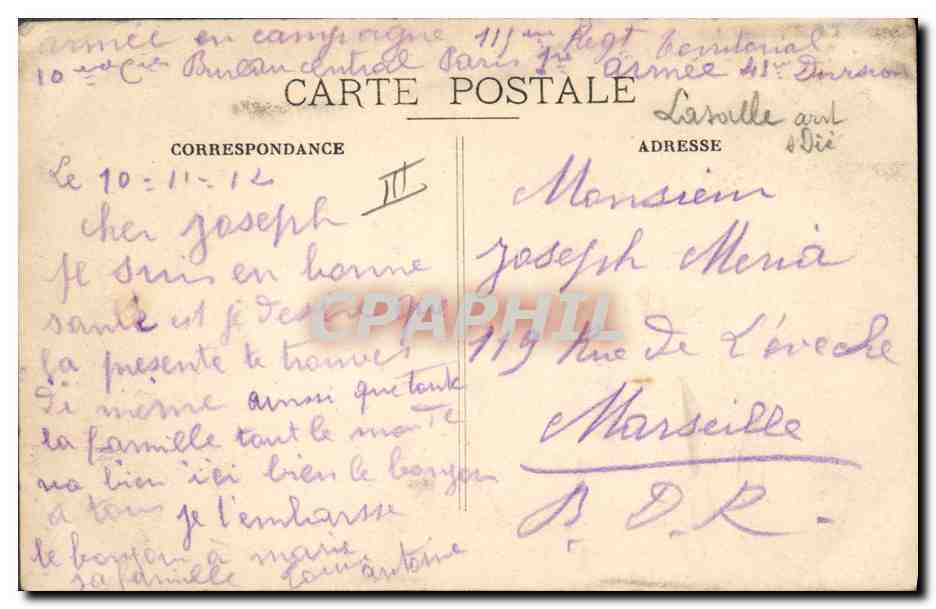 armée en campagne 115me Regt Territorial
10me Cie Bureau central Paris 1re armée 41me Division
CARTE POSTALE
Lasalle arrt
s Dié
CORRESPONDANCE
ADRESSE
Le 10-11-12
III
cher Joseph
Je suis en bonne
santé et je desire que
la presente te trouve
di même ainsi que toute
la famille tout le monde
va bien ici bien le bonjour
a tous je t'embarsse
le bonjour à marie
sa famille Louis antoine
Monsieur
Joseph Meria
119 Rue De L'éveche
Marseille
B. D. R.
CPAPHIL